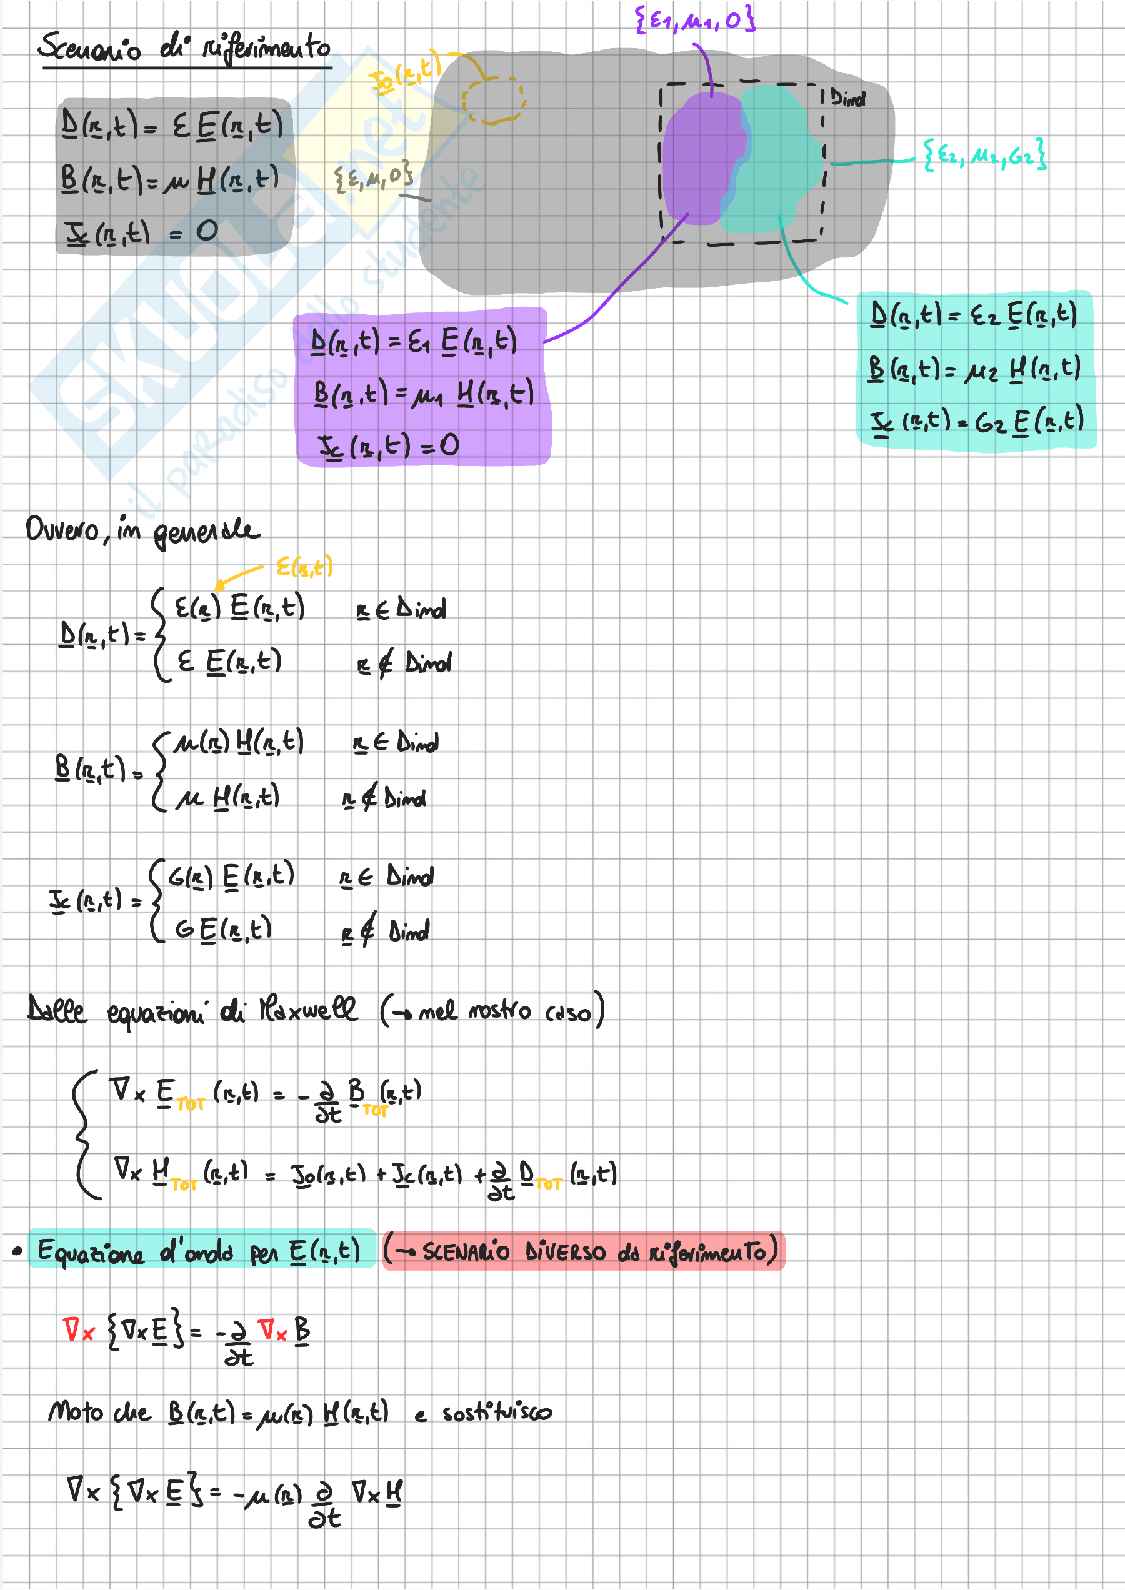 Scenario di riferimento
{ε1, μ1, 0}
J0(r,t)
Dind
{ε, μ, 0}
{ε2, μ2, G2}
D(r,t) = ε E(r,t)
B(r,t) = μ H(r,t)
Jc(r,t) = 0
D(r,t) = ε1 E(r,t)
B(r,t) = μ1 H(r,t)
Jc(r,t) = 0
D(r,t) = ε2 E(r,t)
B(r,t) = μ2 H(r,t)
Jc(r,t) = G2 E(r,t)
SKUOLA.net
il paradiso dello studente
Ovvero, in generale
ε(r,t)
D(r,t) = { ε(r) E(r,t) r ∈ Dind
ε E(r,t) r ∉ Dind
B(r,t) = { μ(r) H(r,t) r ∈ Dind
μ H(r,t) r ∉ Dind
Jc(r,t) = { G(r) E(r,t) r ∈ Dind
G E(r,t) r ∉ Dind
Dalle equazioni di Maxwell (→ nel nostro caso)
∇× E TOT (r,t) = - ∂/∂t B TOT (r,t)
∇× H TOT (r,t) = J0(r,t) + Jc(r,t) + ∂/∂t D TOT (r,t)
• Equazione d'onda per E(r,t) (→ SCENARIO DIVERSO da riferimento)
∇× {∇× E} = - ∂/∂t ∇× B
Noto che B(r,t) = μ(r) H(r,t) e sostituisco
∇× {∇× E} = -μ(r) ∂/∂t ∇× H